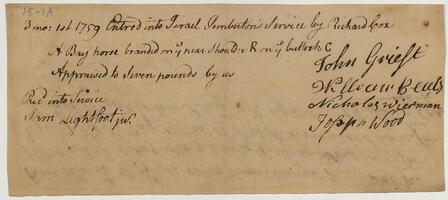 15-1A
3 mo: 1st 1759 Entred into Israel Pemberton's Service by Richard Cox
A Bay horse branded on ye near shoulder R on ye buttock C
Appraised to Seven pounds by us
John Griest
William Beals
Nicholas Wierman
Joseph Wood
Recd into Service
Lightfoot junr